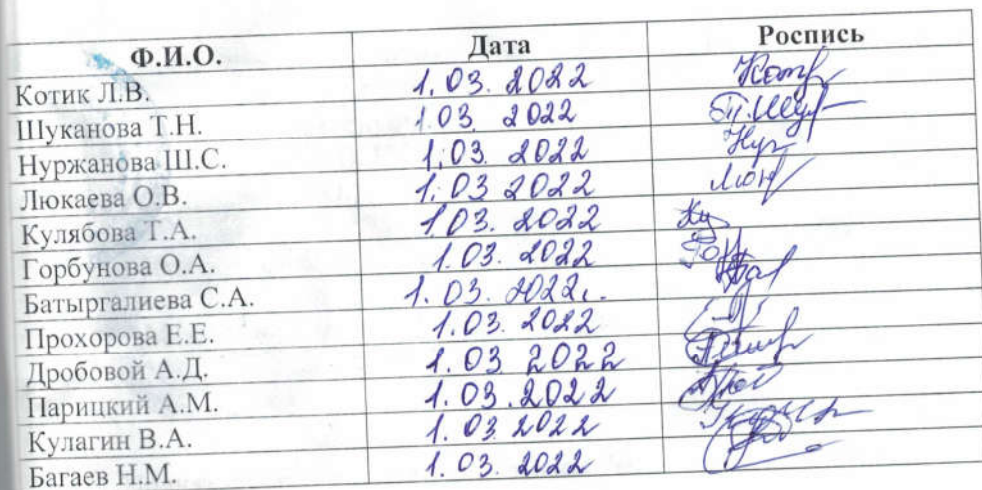 Ф.И.О. Дата Роспись
Котик Л.В. 1.03.2022
Шуканова Т.Н. 1.03.2022
Нуржанова Ш.С. 1.03.2022
Люкаева О.В. 1.03 2022
Кулябова Т.А. 1.03.2022
Горбунова О.А. 1.03.2022
Батыргалиева С.А. 1.03.2022.
Прохорова Е.Е. 1.03.2022
Дробовой А.Д. 1.03 2022
Парицкий А.М. 1.03.2022
Кулагин В.А. 1.03.2022
Багаев Н.М. 1.03.2022